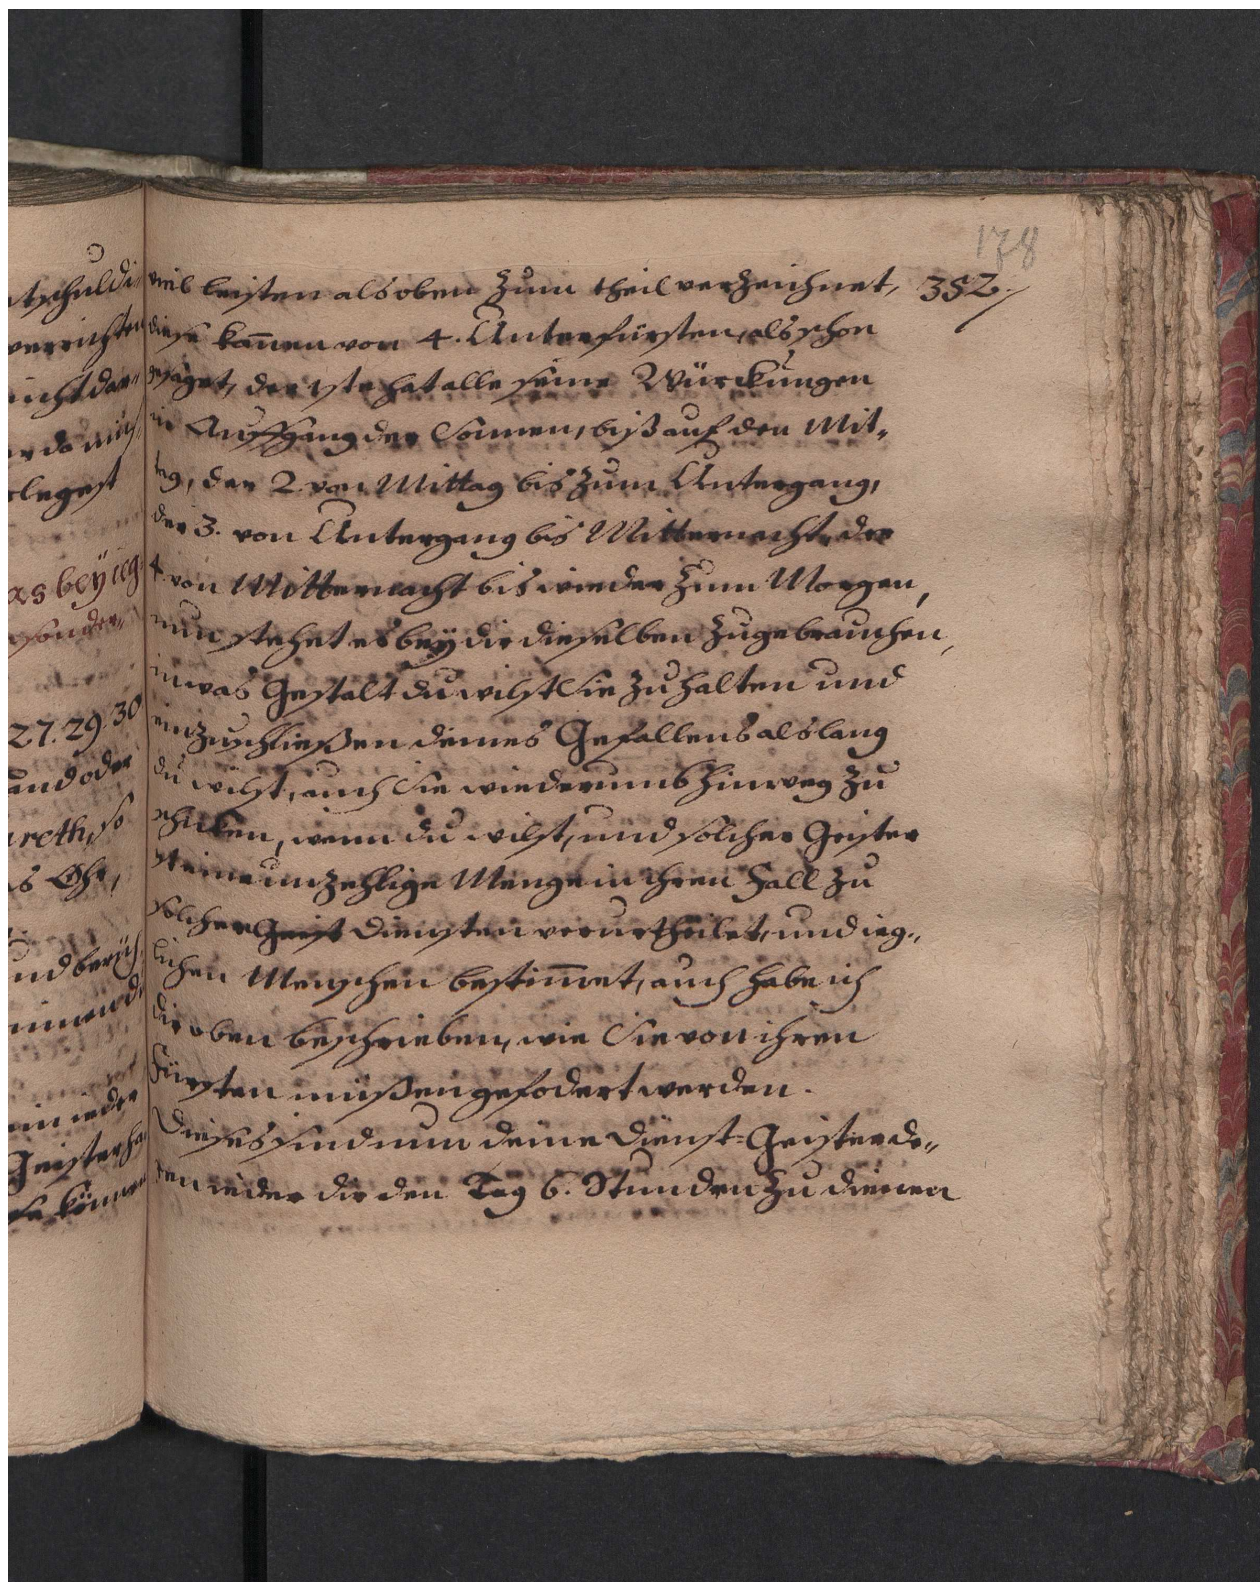 178
352.
viel leisten als oben zum theil verzeichnet,
diese kam̄en von 4. Unterfürsten, als schon
gesaget, der 1ste hat alle seine Würckungen
in Auffgang der Sonnen, biß auf den Mit„
tag, der 2. von Mittag bis zum Untergang,
der 3. von Untergang bis Mitternacht, der
4. von Mitternacht bis wieder zum Morgen,
nun stehet es bey dir dieselben zugebrauchen,
in was Gestalt du wilst Sie zu halten und
einzuschließen deines Gefallens als lang
du wilst, auch Sie wiederumb hinweg zu
schicken, wenn du wilst, und solcher Geister
ist eine unzehlige Menge in ihren Fall zu
solcher Geist Diensten verurtheilet, und ieg„
lichen Menschen bestim̄et, auch habe ich
dir oben beschrieben, wie Sie von ihren
Fürsten müßen gefodert werden.
Dieses sind nun deine Dienst=Geister de„
ren ieder dir den Tag 6. Stunden zu dienen